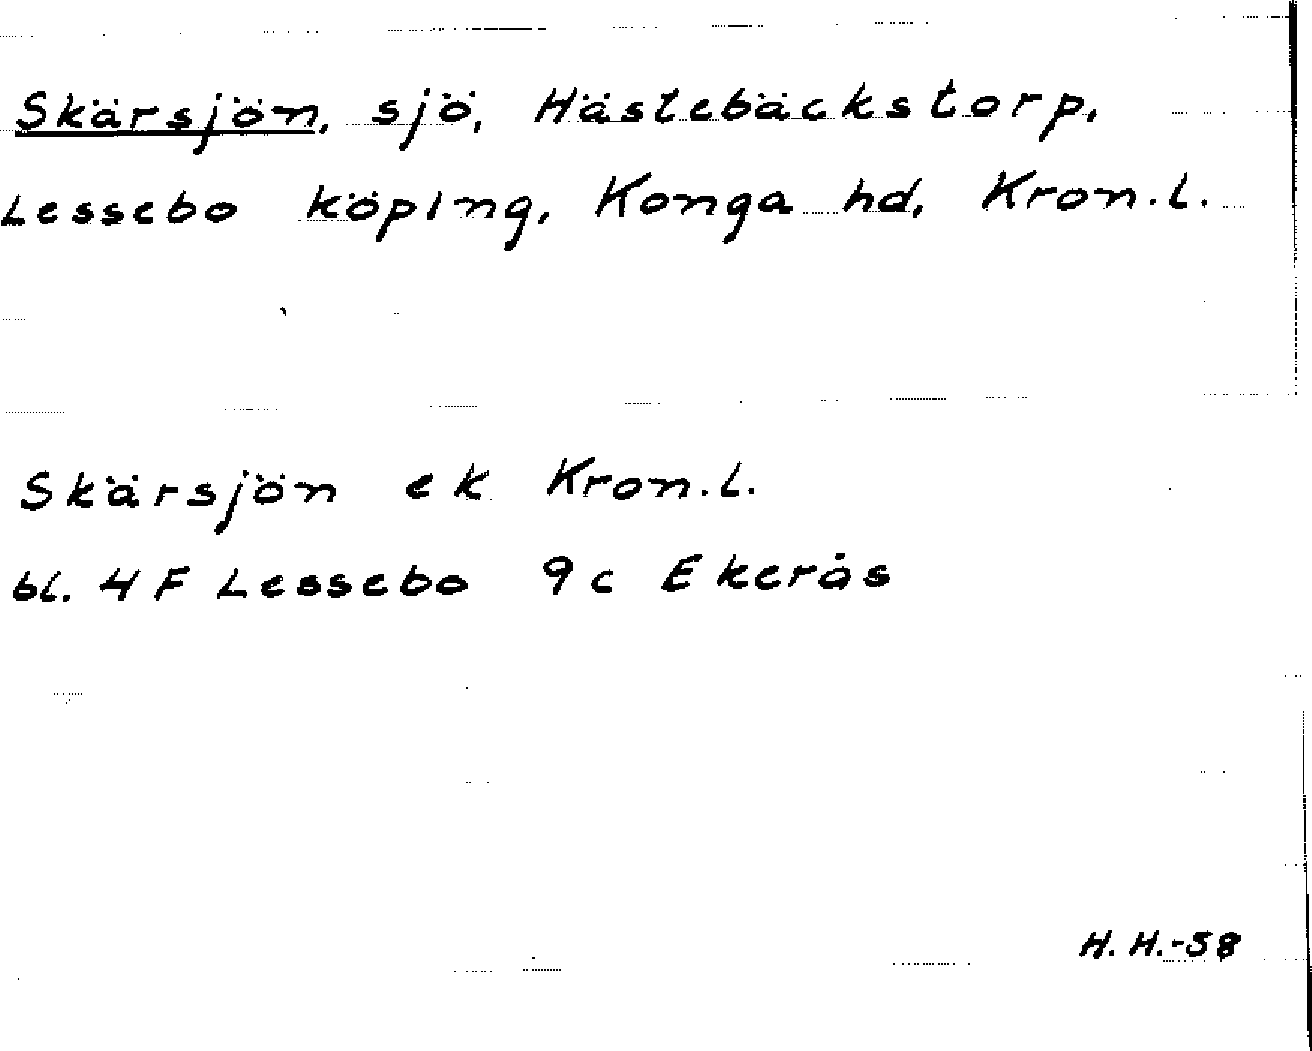 Skärsjön, sjö, Hästebäckstorp,
Lessebo köping, Konga hd, Kron.l.
Skärsjön ek Kron.l.
bl. 4 F Lessebo 9c Ekerås
H. H.-58